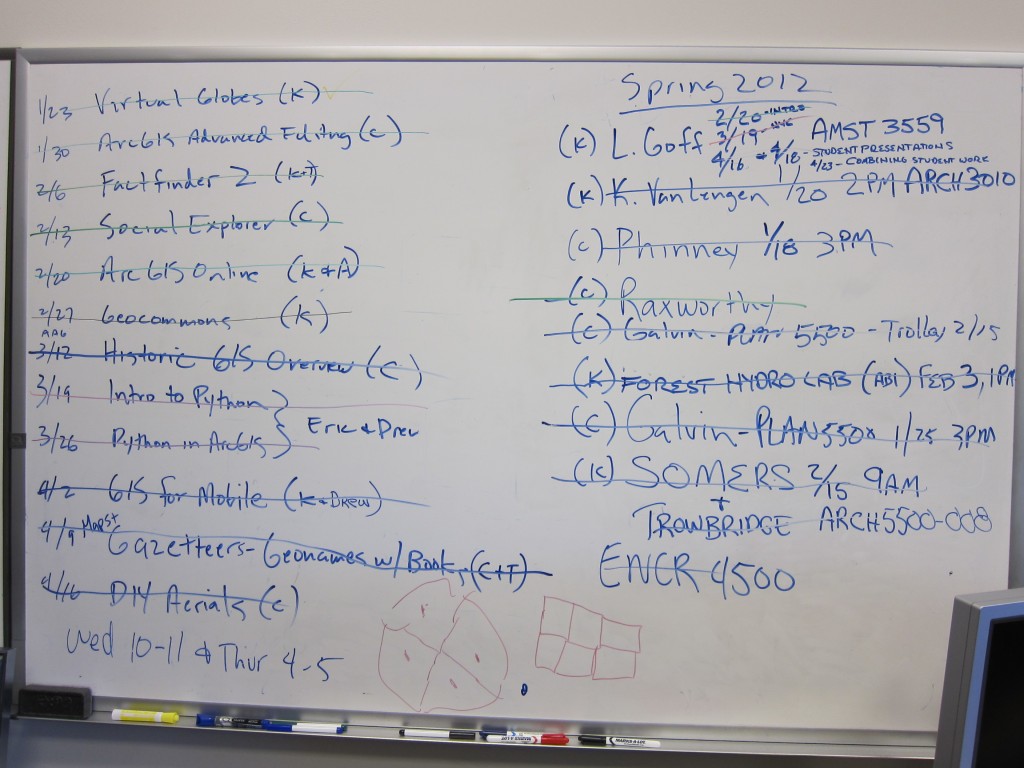 1/23 Virtual Globes (K)
1/30 ArcGIS Advanced Editing (C)
2/6 Factfinder 2 (K+T)
2/13 Social Explorer (C)
2/20 ArcGIS Online (K+A)
2/27 Geocommons (K)
AAG
3/12 Historic GIS Overview (C)
3/19 Intro to Python
3/26 Python in ArcGIS
Eric & Drew
4/2 GIS for Mobile (K+DREW)
4/9 Gazetteers- Geonames w/ Book, (C+T)
4/16 DIY Aerials (C)
Wed 10-11 & Thur 4-5
Spring 2012
2/20 -INTRO
(K) L. Goff 3/19 AMST 3559
4/16 + 4/18 - STUDENT PRESENTATIONS
4/23 - COMBINING STUDENT WORK
(K) K. VanLengen 1/20 2PM ARCH 3010
(C) Phinney 1/18 3PM
(C) Raxworthy
(C) Galvin - PLAN 5500 - Trolley 2/15
(K) FOREST HYDRO LAB (ABI) FEB 3, 1PM
(C) Galvin - PLAN 550X 1/25 3PM
(K) SOMERS 2/15 9AM
+
TROWBRIDGE ARCH 5500-008
ENCR 4500